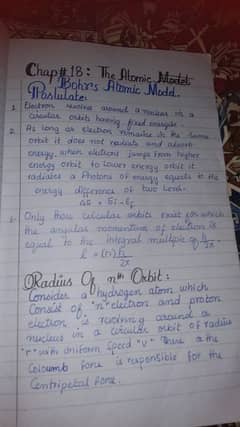 Chap # 18: The Atomic Model
Bohr's Atomic Model.
Postulate:
1. Electron revolve around a nucleus in a
circular orbits having fixed energies.
2. As long as electron remains in the same
orbit it does not radiate and absorb
energy, when electrons jumps from higher
energy orbit to lower energy orbit it
radiates a Photons of energy equals to the
energy difference of two level.
3. Only those circular orbits exist for which
the angular momentum of electron is
equal to the integral multiple of h/2π
Radius Of nth Orbit:
Consider a hydrogen atom which
Consist of "n" electron and proton
electron is revolving around a
nucleus in a circular orbit of radius
"r" with uniform speed "v" There is the
Coloumb force is responsible for the
Centripetal force.